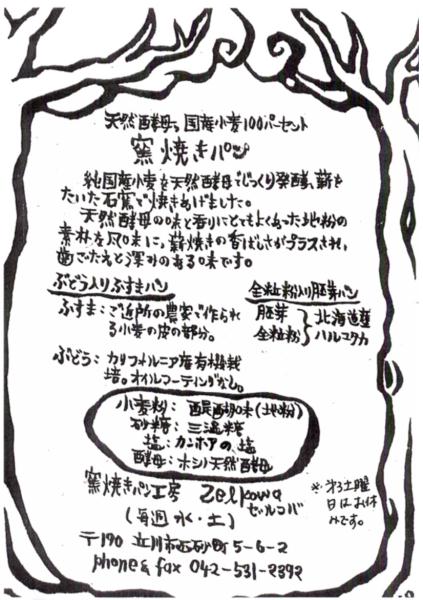 天然酵母、国産小麦100パーセント
窯焼きパン
純国産小麦を天然酵母でじっくり発酵、薪を
たいた石窯で焼きあげました。
天然酵母の味と香りにとてもよくあった地粉の
素朴な風味に、薪焼きの香ばしさがプラスされ、
歯ごたえと深みのある味です。
ぶどう入りふすまパン
ふすま：ご近所の農家で作られ
る小麦の皮の部分。
ぶどう：カリフォルニア産有機栽
培。オイルコーティングなし。
全粒粉入り胚芽パン
胚芽
全粒粉
北海道産
ハルユタカ
小麦粉：醍醐味（地粉）
砂糖：三温糖
塩：カンホアの塩
酵母：ホシノ天然酵母
窯焼きパン工房 Zelkowa
ゼルコバ
（毎週水・土）
※第3土曜
日はお休
みです。
〒190 立川市西砂町5-6-2
phone & fax 042-531-2392